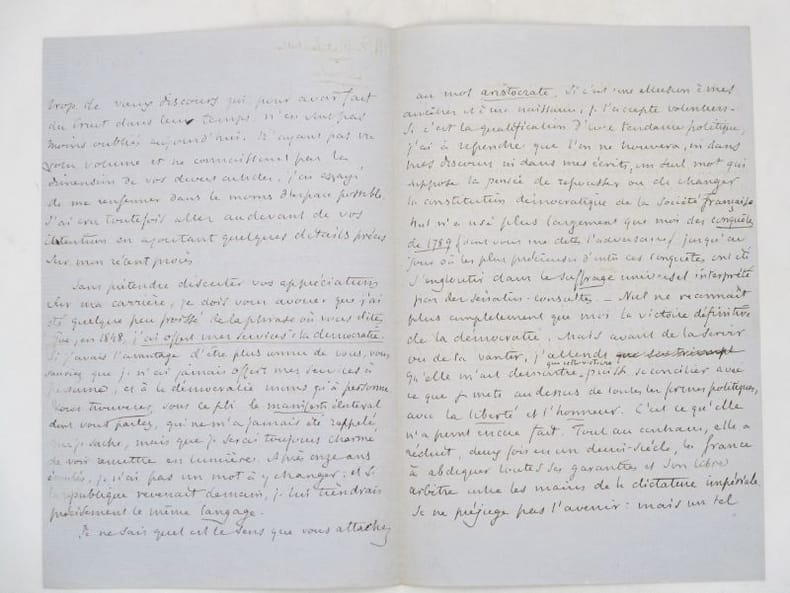 trop de vieux discours qui pour avoir fait
du bruit dans leur temps, n'en sont pas
moins oubliés aujourd'hui. N'ayant pas vu
votre volume et ne connaissant pas la
dimension de vos divers articles, j'ai essayé
de me renfermer dans le moins d'espace possible.
J'ai cru toutefois aller au devant de vos
intentions en ajoutant quelques détails précis
sur mon récent procès
Sans prétendre discuter vos appréciations
sur ma carrière, je dois vous avouer que j'ai
été quelque peu froissé de la phrase où vous dites
que, en 1848, j'ai offert mes services à la démocratie.
Si j'avais l'avantage d'être plus connu de vous, vous
sauriez que je n'ai jamais offert mes services à
personne, et à la démocratie moins qu'à personne
Vous trouverez sous ce pli le manifeste électoral
dont vous parlez, qui ne m'a jamais été rappelé,
que je sache, mais que je serai toujours charmé
de voir remettre en lumière. Après onze ans
écoulés, je n'ai pas un mot à y changer: et si
la république revenait demain, je lui tiendrais
précisément le même langage.
Je ne sais quel est le sens que vous attachez
au mot aristocrate. Si c'est une allusion à mes
ancêtres et à ma naissance, je l'accepte volontiers.
Si c'est la qualification d'une tendance politique,
j'ai à répondre que l'on ne trouvera, ni dans
mes discours ni dans mes écrits, un seul mot qui
suppose la pensée de repousser ou de changer
la constitution démocratique de la Société française
Nul n'a usé plus largement que moi des conquêtes
de 1789 (dont vous me dites l'adversaire) jusqu'au
jour où les plus précieuses d'entre ces conquêtes ont été
s'engloutir dans le suffrage universel interprété
par des sénatus-consultes. — Nul ne reconnaît
plus complètement que moi la victoire définitive
de la démocratie. Mais avant de la servir
ou de la vanter, j'attends
que cette victoire
qu'elle m'ait démontré puisse se concilier avec
ce que je mets au dessus de toutes les formes politiques,
avec la liberté et l'honneur. C'est ce qu'elle
n'a point encore fait. Tout au contraire, elle a
réduit, deux fois en un demi-siècle, la France
à abdiquer toutes ses garanties et son libre
arbitre entre les mains de la dictature impériale.
Je ne préjuge pas l'avenir: mais un tel